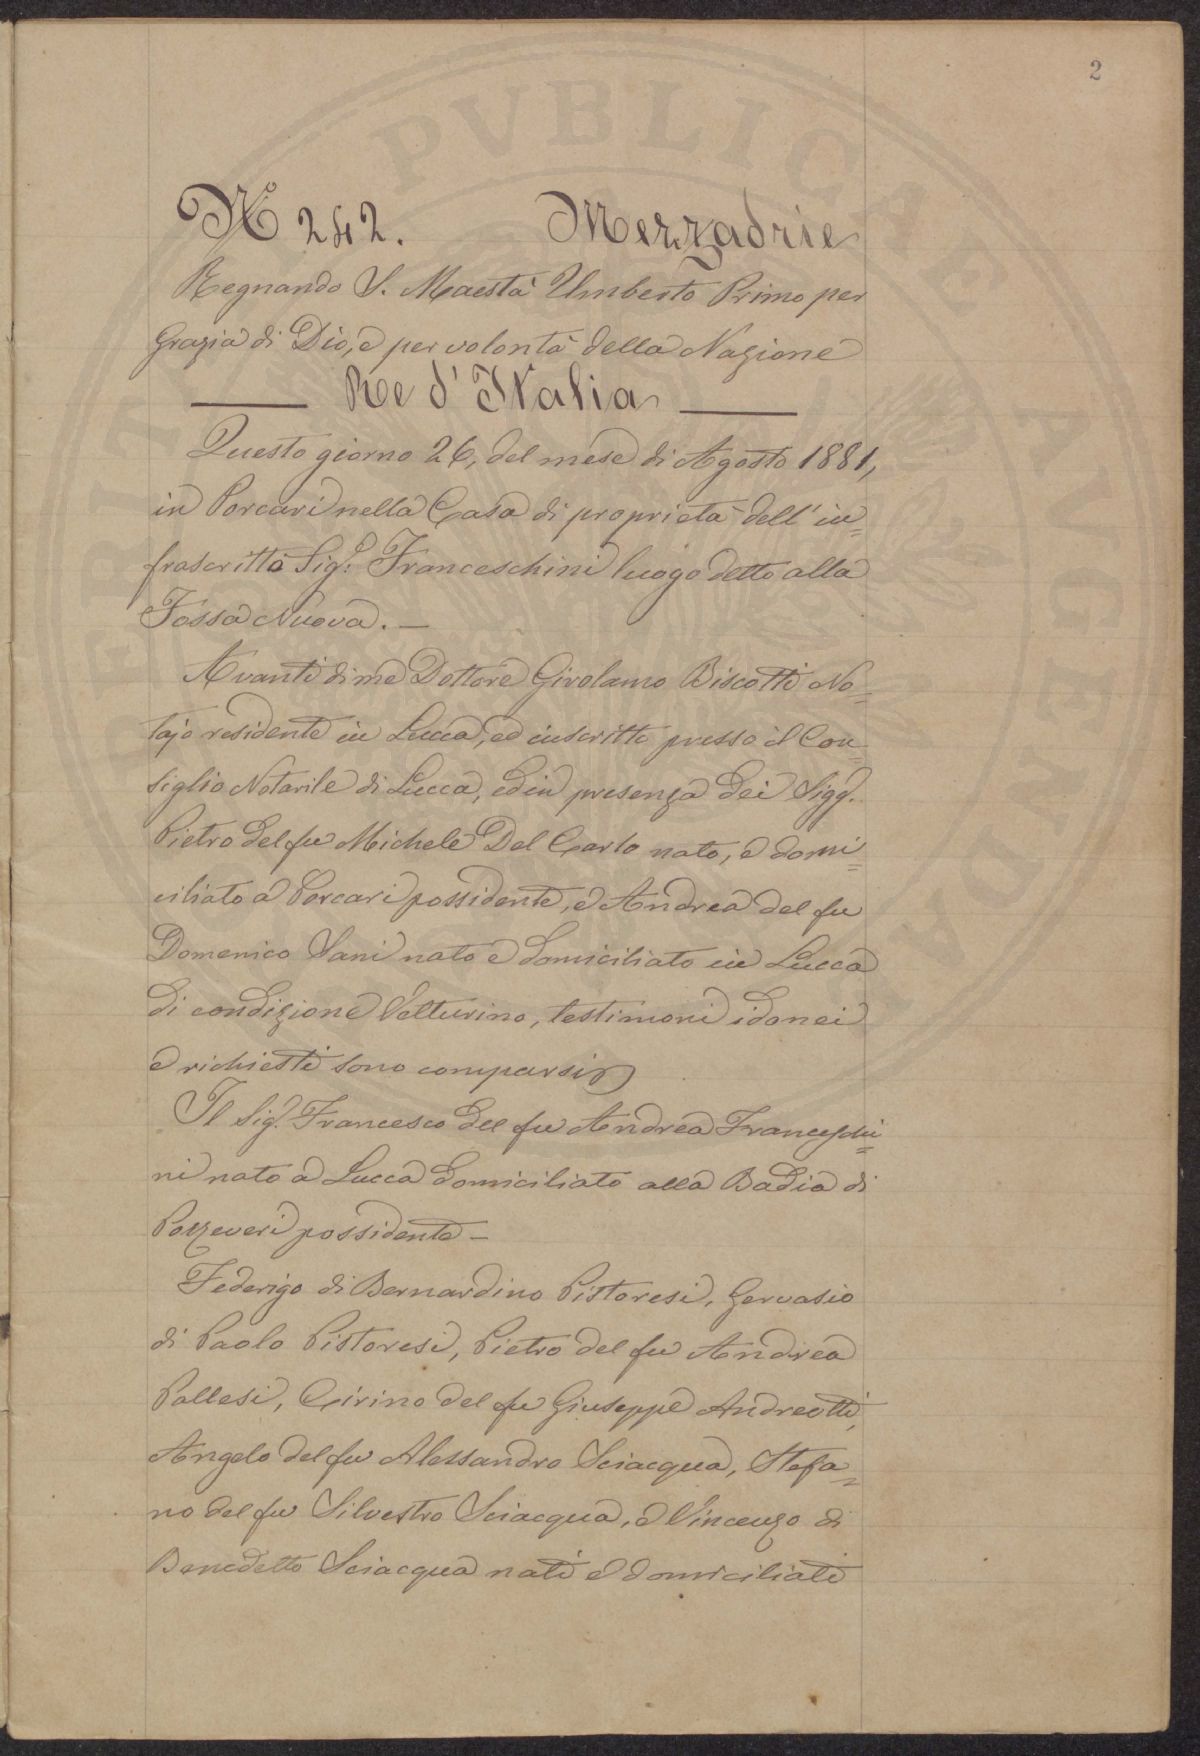 2
N.º 242. Mezzadrie
Regnando S. Maestà Umberto Primo per
Grazia di Dio, e per volontà della Nazione
Re d' Italia
Questo giorno 26, del mese di Agosto 1881,
in Porcari nella Casa di proprietà dell' in=
frascritto Sig.r Franceschini luogo detto alla
Fossa Nuova. —
Avanti di me Dottore Girolamo Biscotti No=
tajo residente in Lucca, ed inscritto presso il Con=
siglio Notarile di Lucca, ed in presenza dei Sigg.
Pietro del fu Michele Del Carlo nato, e domi=
ciliato a Porcari possidente, e Andrea del fu
Domenico Sani nato e domiciliato in Lucca
di condizione Vetturino, testimoni idonei
e richiesti sono comparsi
Il Sig.r Francesco del fu Andrea Franceschi=
ni nato a Lucca domiciliato alla Badia di
Pozzeveri possidente —
Federigo di Bernardino Pistoresi, Gervasio
di Paolo Pistoresi, Pietro del fu Andrea
Pallesi, Cirino del fu Giuseppe Andreotti,
Angelo del fu Alessandro Sciacqua, Stefa=
no del fu Silvestro Sciacqua, e Vincenzo di
Benedetto Sciacqua nati e domiciliati